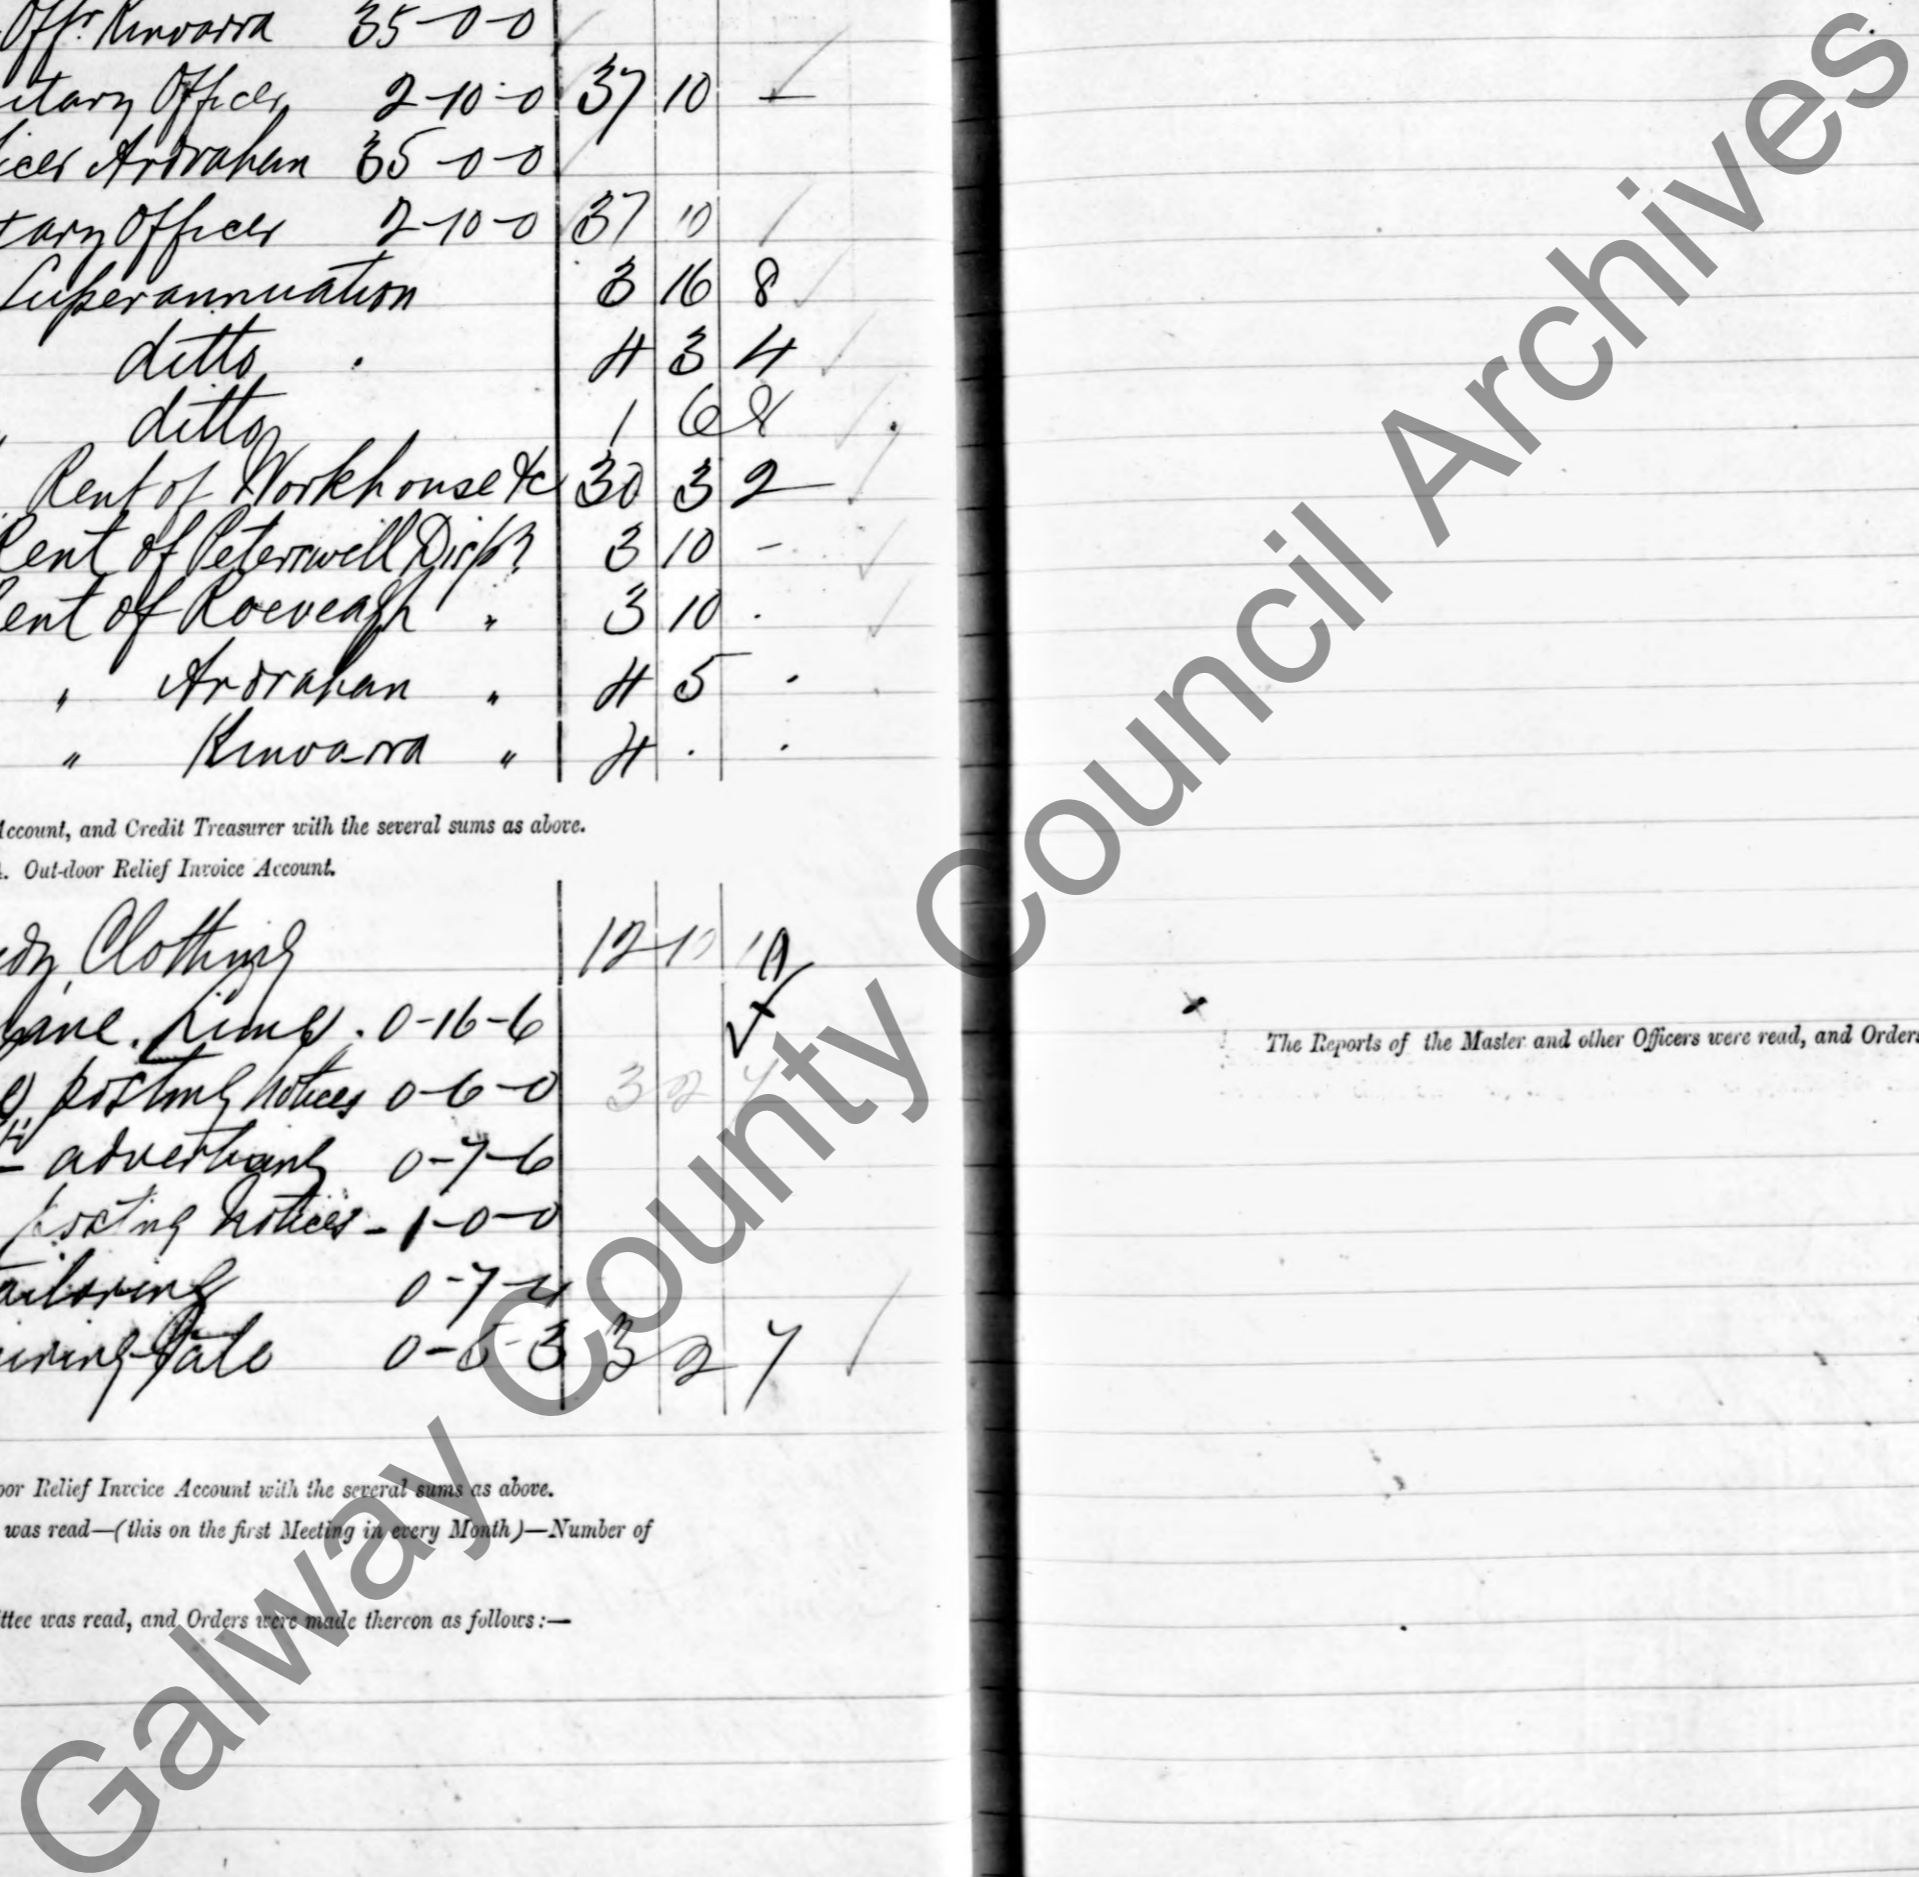 Offr. Kinvarra 35-0-0
itary Officer 2-10-0 37 10 -
icer Ardrahan 35-0-0
tary Officer 2-10-0 37 10
Superannuation 3 16 8
ditto 4 3 4
ditto 1 6 8
Rent of Workhouse &c 30 3 2
Rent of Peterswell Dispy 3 10 -
ent of Roeveagh " 3 10 .
" Ardrahan " 4 5 .
" Kinvarra " 4 . .
Account, and Credit Treasurer with the several sums as above.
Out-door Relief Invoice Account.
Clothing 12 10
Lime . 0-16-6
posting notices 0-6-0 3 2 7
advertising 0-7-6
posting notices - 1-0-0
ailoring 0-7-4
iring Gate 0-5-3 3 2 7
oor Relief Invoice Account with the several sums as above.
was read—(this on the first Meeting in every Month)—Number of
ttee was read, and Orders were made thereon as follows:—
The Reports of the Master and other Officers were read, and Orders
Galway County Council Archives